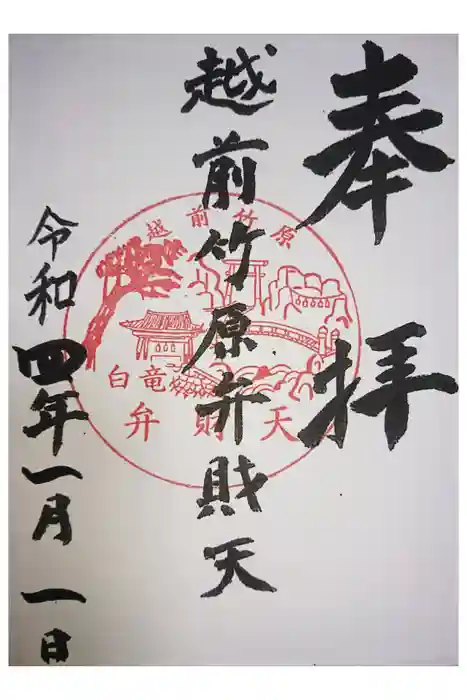 奉拝
越前竹原弁財天
令和四年一月一日
越前竹原
白竜
弁財天